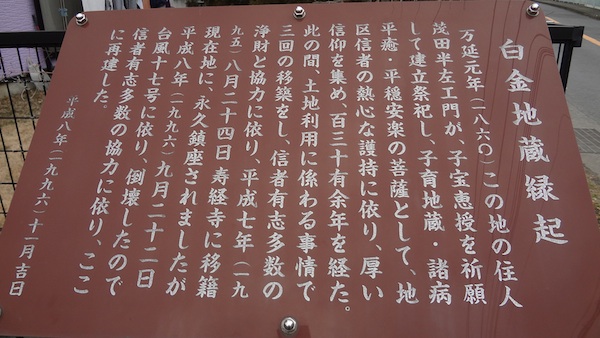 白金地蔵縁起
万延元年(一八六〇)この地の住人
茂田半左エ門が、子宝恵授を祈願
して建立祭祀し、子育地蔵・諸病
平癒・平穏安楽の菩薩として、地
区信者の熱心な護持に依り、厚い
信仰を集め、百三十有余年を経た。
此の間、土地利用に係わる事情で
三回の移築をし、信者有志多数の
浄財と協力に依り、平成七年(一九
九五)八月二十四日寿経寺に移籍
現在地に、永久鎮座されましたが
平成八年(一九九六)九月二十二日
台風十七号に依り、倒壊したので
信者有志多数の協力に依り、ここ
に再建した。
平成八年(一九九六)十一月吉日